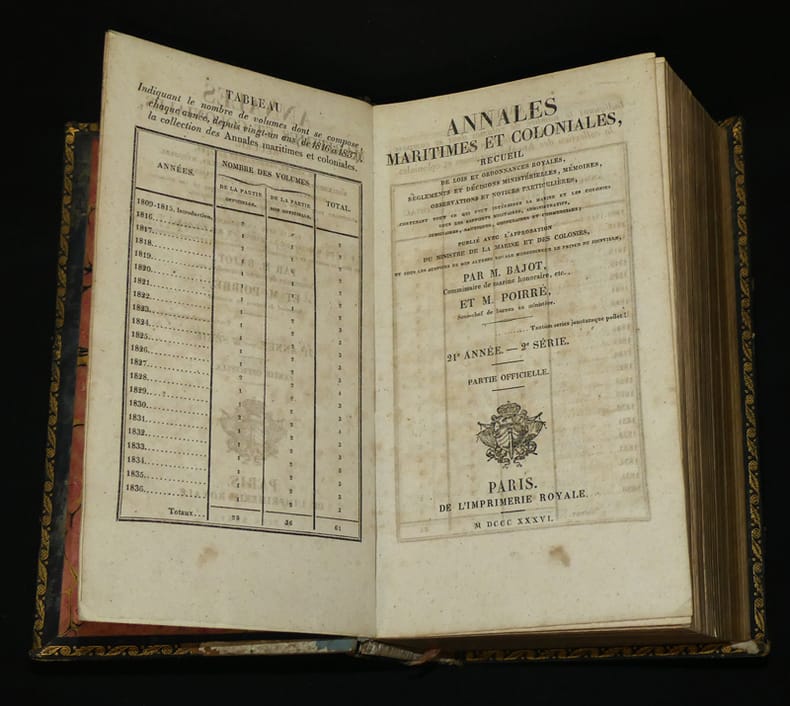 TABLEAU
Indiquant le nombre de volumes dont se compose,
chaque année, depuis vingt-un ans (de 1816 à 1837),
la collection des Annales maritimes et coloniales.
ANNÉES.
NOMBRE DES VOLUMES
DE LA PARTIE OFFICIELLE.
DE LA PARTIE NON OFFICIELLE.
TOTAL.
1809-1815. Introduction.
1816
1817
1818
1819
1820
1821
1822
1823
1824
1825
1826
1827
1828
1829
1830
1831
1832
1833
1834
1835
1836
Totaux... 36 61
ANNALES
MARITIMES ET COLONIALES,
RECUEIL
DE LOIS ET ORDONNANCES ROYALES,
RÈGLEMENTS ET DÉCISIONS MINISTÉRIELLES, MÉMOIRES,
OBSERVATIONS ET NOTICES PARTICULIÈRES,
CONTENANT TOUT CE QUI PEUT INTÉRESSER LA MARINE ET LES COLONIES
SOUS LES RAPPORTS MILITAIRES, ADMINISTRATIFS,
JUDICIAIRES, NAUTIQUES, CONSULAIRES ET COMMERCIAUX;
PUBLIÉ AVEC L'APPROBATION
DU MINISTRE DE LA MARINE ET DES COLONIES,
ET SOUS LES AUSPICES DE SON ALTESSE ROYALE MONSEIGNEUR LE PRINCE DE JOINVILLE,
PAR M. BAJOT,
Commissaire de marine honoraire, etc.,
ET M. POIRRÉ,
Sous-chef de bureau au ministère.
Tantùm series juncturaque pollet!
21e ANNÉE. — 2e SÉRIE.
PARTIE OFFICIELLE.
PARIS.
DE L'IMPRIMERIE ROYALE.
M DCCC XXXVI.